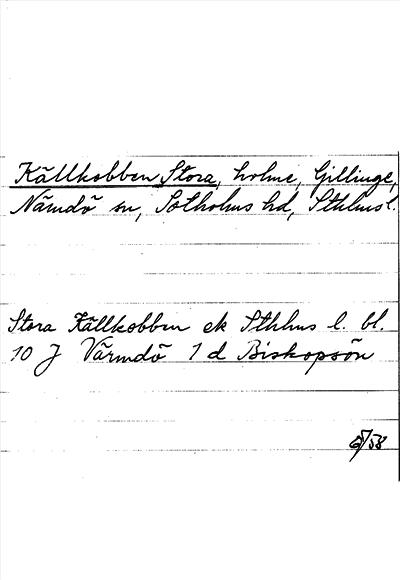 Källkobben Stora, holme, Gillinge,
Nämdö sn, Sotholms hd, Sthlmsl.
Stora Källkobben ek Sthlms l. bl.
10 J Värmdö 1 d Biskopsön
/58